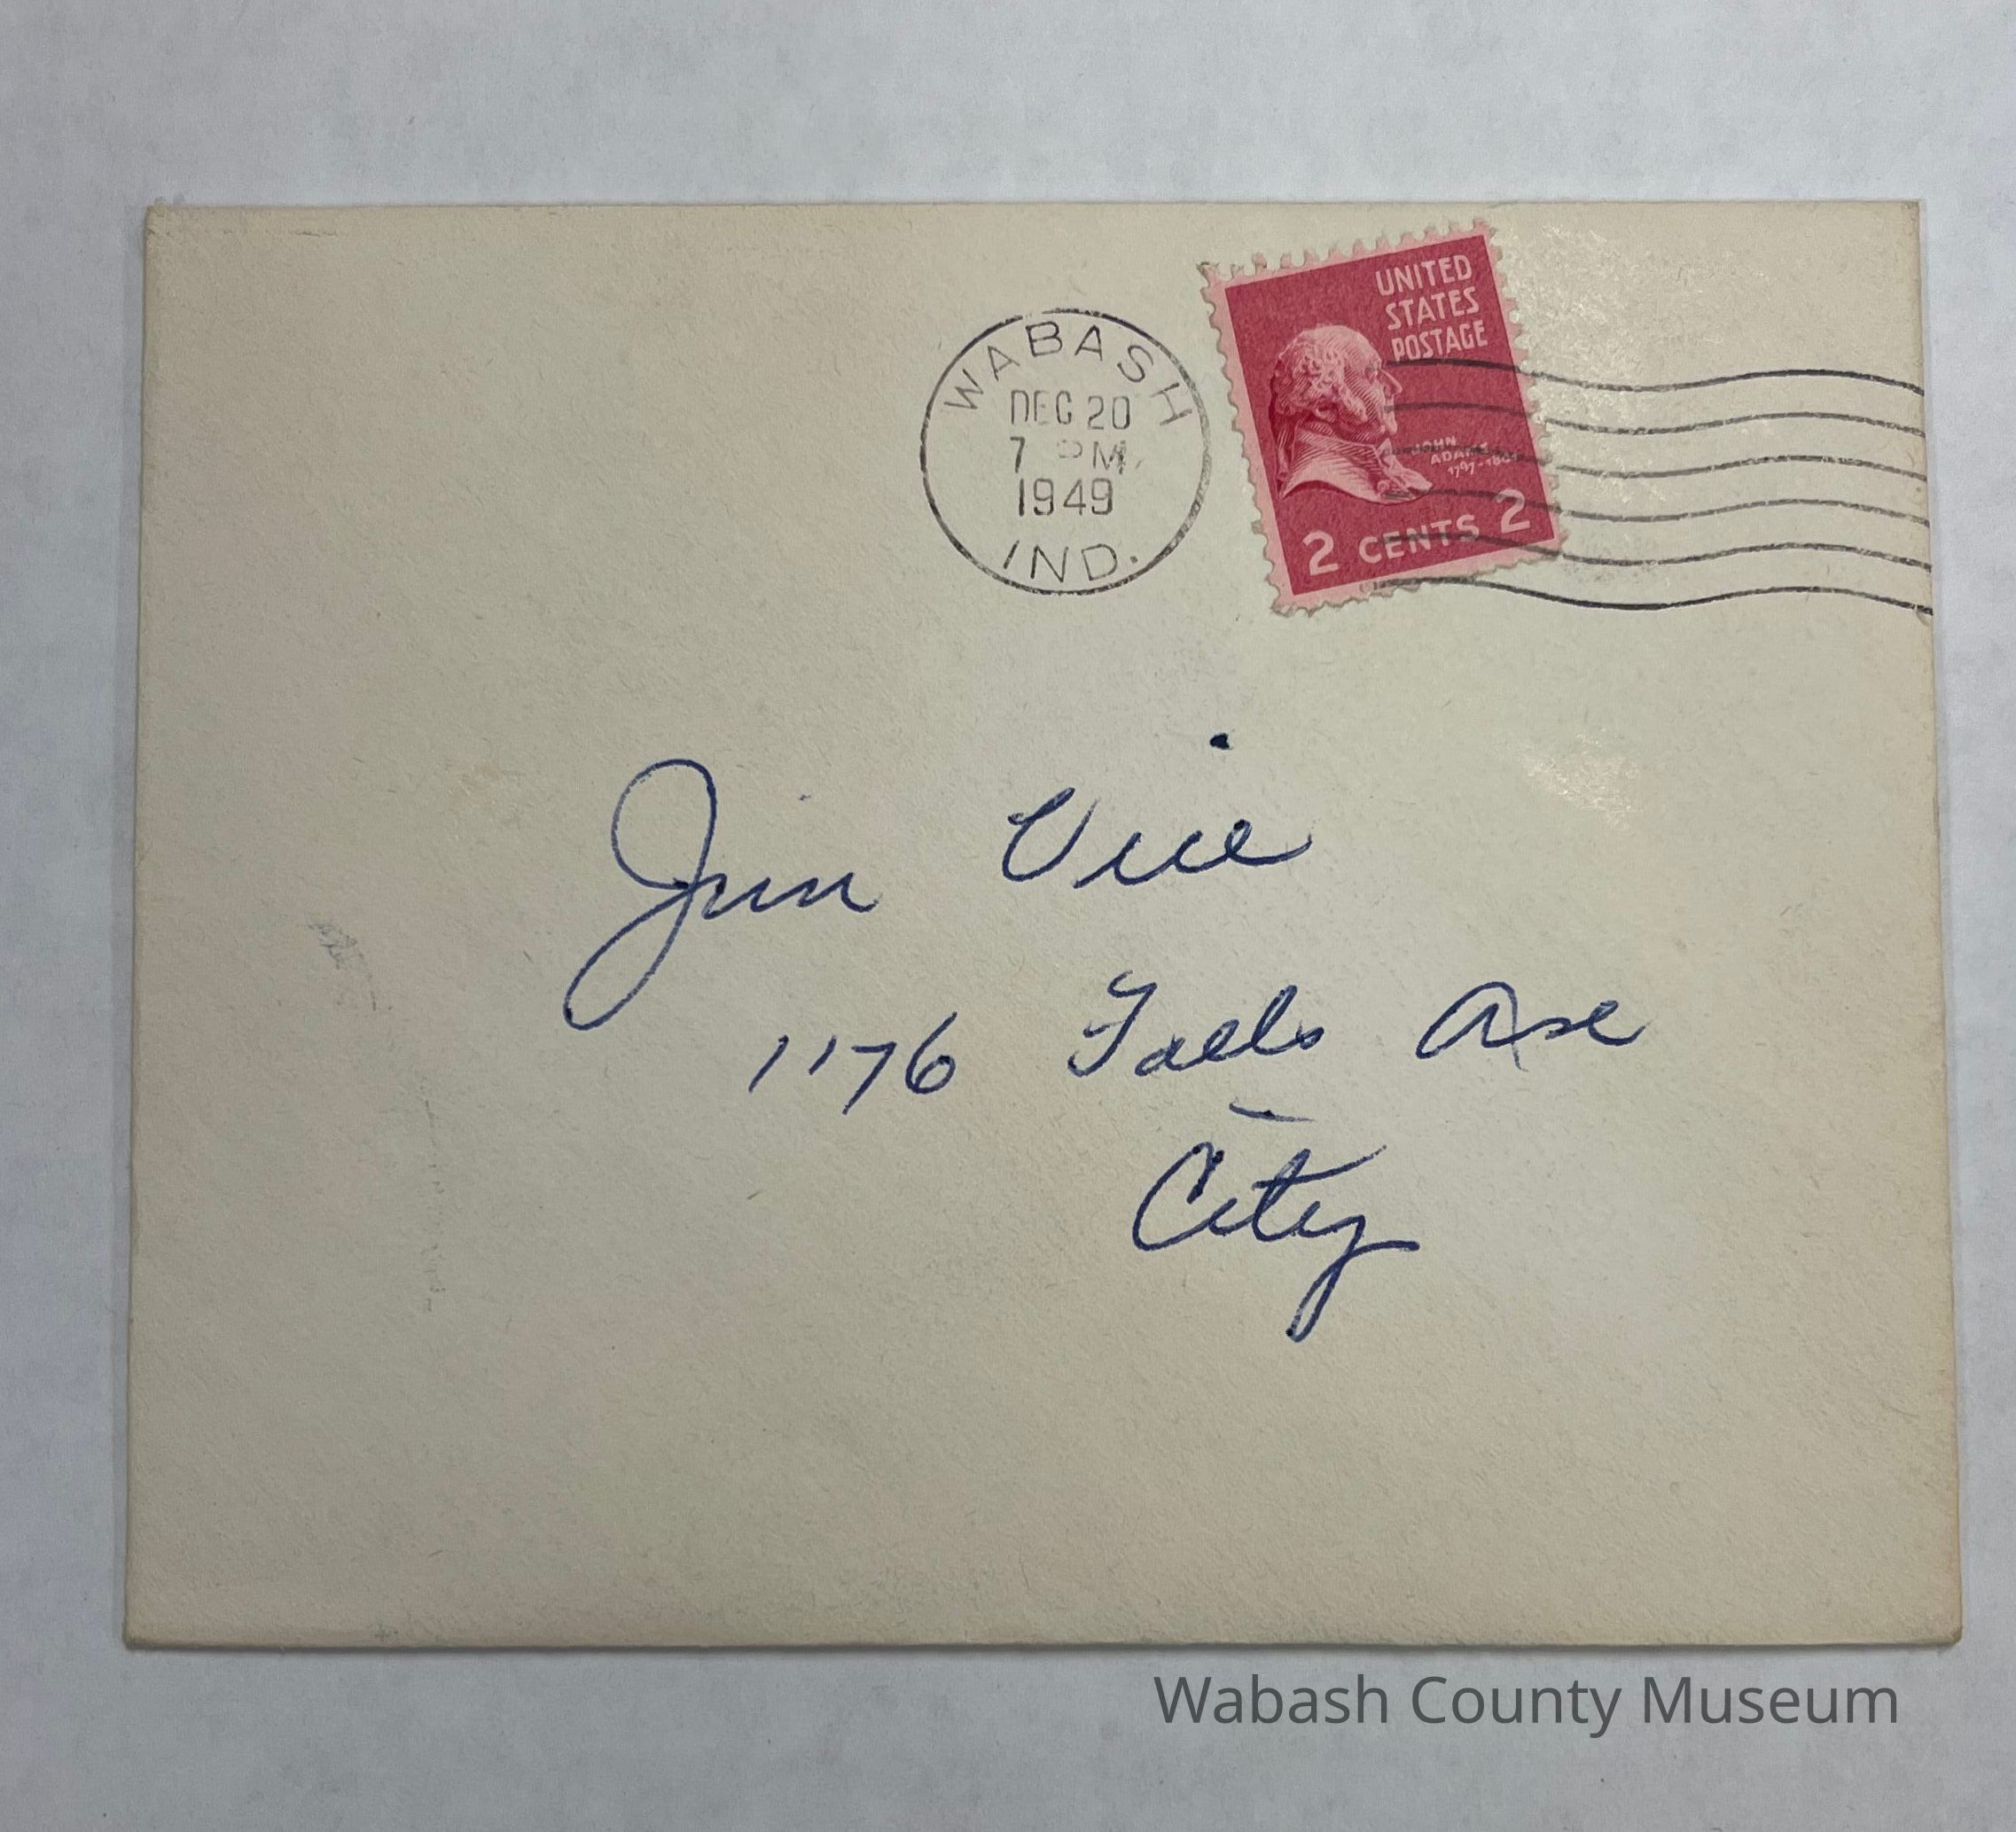 WABASH
DEC 20
7 PM
1949
IND.
UNITED
STATES
POSTAGE
JOHN
ADAMS
1797-1801
2 CENTS 2
Jim Vice
1176 Falls Ave
City
Wabash County Museum